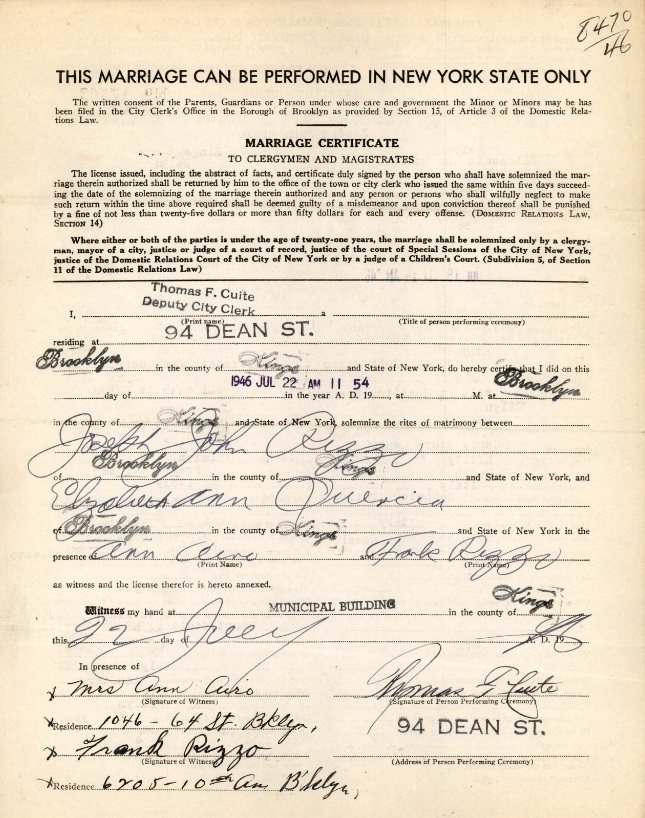 8470
46
THIS MARRIAGE CAN BE PERFORMED IN NEW YORK STATE ONLY
The written consent of the Parents, Guardians or Person under whose care and government the Minor or Minors may be has
been filed in the City Clerk's Office in the Borough of Brooklyn as provided by Section 15, of Article 3 of the Domestic Rela-
tions Law.
MARRIAGE CERTIFICATE
TO CLERGYMEN AND MAGISTRATES
The license issued, including the abstract of facts, and certificate duly signed by the person who shall have solemnized the mar-
riage therein authorized shall be returned by him to the office of the town or city clerk who issued the same within five days succeed-
ing the date of the solemnizing of the marriage therein authorized and any person or persons who shall wilfully neglect to
make such return within the time above required shall be deemed guilty of a misdemeanor and upon conviction thereof shall be punished
by a fine of not less than twenty-five dollars or more than fifty dollars for each and every offense. (DOMESTIC RELATIONS LAW,
SECTION 14)
Where either or both of the parties is under the age of twenty-one years, the marriage shall be solemnized only by a clergy-
man, mayor of a city, justice or judge of a court of record, justice of the court of Special Sessions of the City of New York,
justice of the Domestic Relations Court of the City of New York or by a judge of a Children's Court. (Subdivision 5, of Section
11 of the Domestic Relations Law)
Thomas F. Cuite
Deputy City Clerk
I, a
(Print name) (Title of person performing ceremony)
94 DEAN ST.
residing at
Brooklyn in the county of Kings and State of New York, do hereby certify that I did on this
1946 JUL 22 AM 11 54
day of in the year A. D. 19 , at M. at Brooklyn
in the county of Kings and State of New York, solemnize the rites of matrimony between
Joseph John Rizzo
of Brooklyn in the county of Kings and State of New York, and
Elizabeth Ann Quercia
of Brooklyn in the county of Kings and State of New York in the
presence of Ann Airo and Frank Rizzo
(Print Name) (Print Name)
as witness and the license therefor is hereto annexed.
Witness my hand at MUNICIPAL BUILDING in the county of Kings
this 22 day of July A. D. 19 46
In presence of
x Mrs Ann Airo Thomas F Cuite
(Signature of Witness) (Signature of Person Performing Ceremony)
x Residence 1046 - 64 St. Bklyn, 94 DEAN ST.
x Frank Rizzo
(Signature of Witness) (Address of Person Performing Ceremony)
x Residence 6205 - 10th Ave B'klyn,